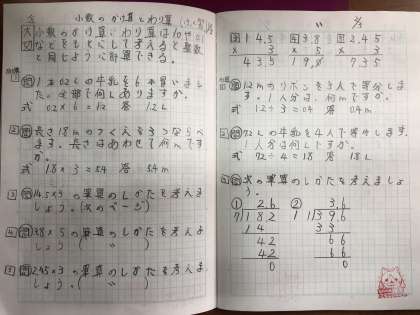 小数のかけ算とわり算
小数のかけ算とわり算は10や
などをもとにして考えると整数
と同じように計算できる。
1本0.2Lの牛乳を6本買いまし
た。全部で何Lありますか。
式 0.2×6=1.2 答 1.2L
2 問 長さ1.8mのつくえを3つならべ
ます。長さはあわせて何mです
か。
式 1.8×3=5.4 答 5.4m
3 問 14.5×3の筆算のしかたを考えま
しょう。(次のページ)
4 問 3.8×5の筆算のしかたを考えま
しょう。( 〃 )
5 問 2.45×3の筆算のしかたを考えま
しょう。( 〃 )
14.5 3.8 2.45
× 3 × 5 × 3
43.5 19.0 7.35
1.2mのリボンを3人で等分しま
す。1人分は、何mですか。
式 1.2÷3=0.4 答 0.4m
7.2Lの牛乳を4人で等分します。
1人分は何Lですか。
式 7.2÷4=1.8 答 1.8L
問 次の筆算のしかたを考えましょ
う。
① 2.6 ② 3.6
7 18.2 11 39.6
14 33
42 66
42 66
0 0